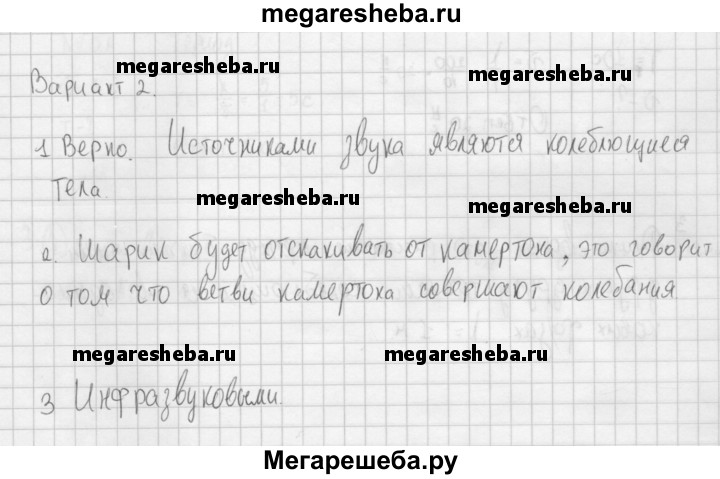 megaresheba.ru
megaresheba.ru
megaresheba.ru
Вариант 2.
1 Верно. Источниками звука являются колеблющиеся
тела.
megaresheba.ru
megaresheba.ru
2. Шарик будет отскакивать от камертона, это говорит
о том что ветви камертона совершают колебания
megaresheba.ru
megaresheba.ru
3 Инфразвуковыми.
Мегарешеба.ру